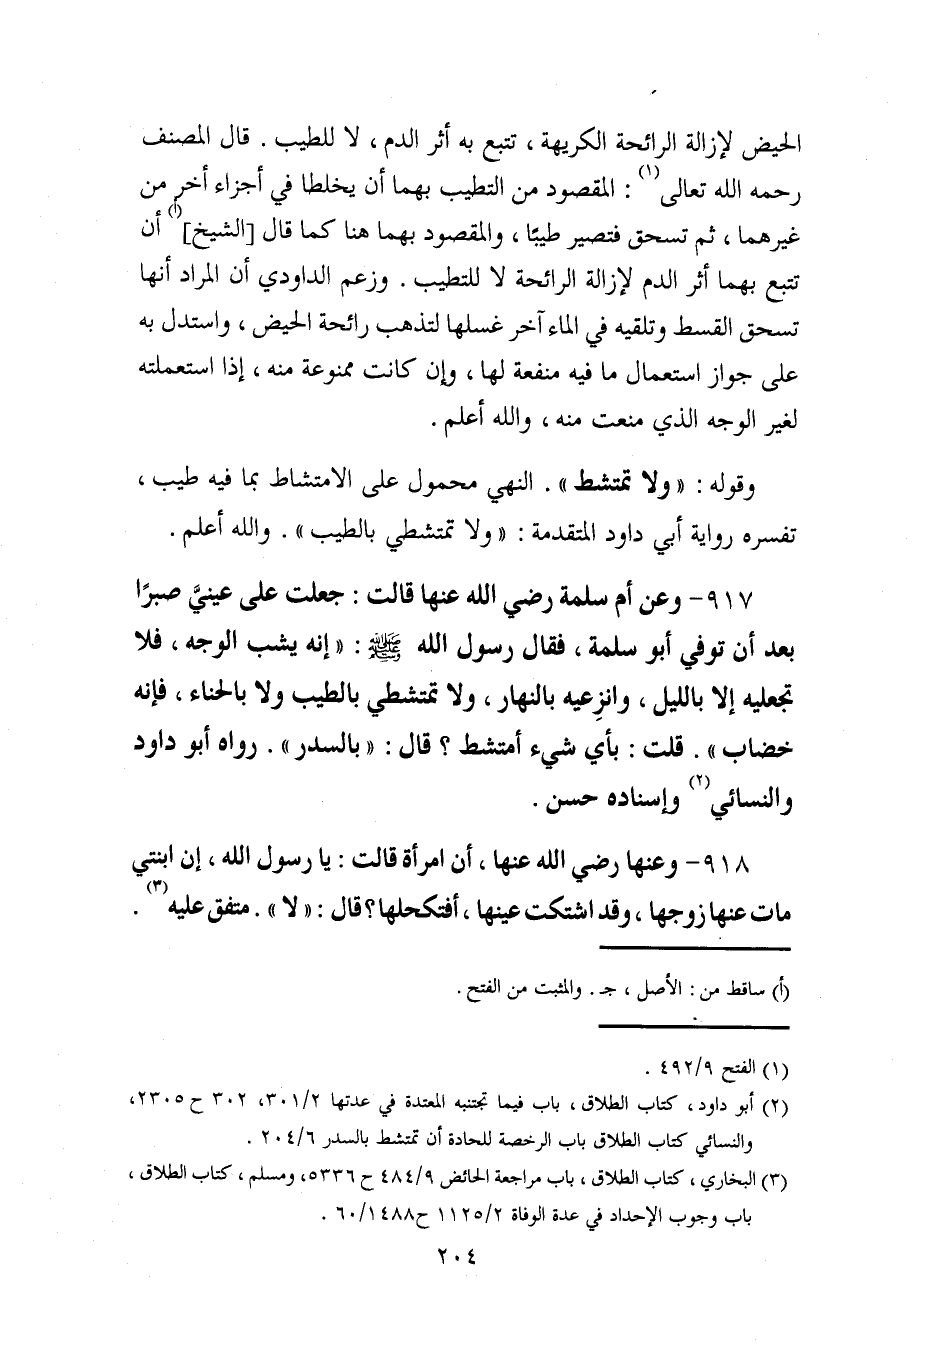 الحيض لإزالة الرائحة الكريهة ، تتبع به أثر الدم ، لا للطيب . قال المصنف
رحمه الله تعالى(١) : المقصود من التطيب بهما أن يخلطا في أجزاء أخر من
غيرهما ، ثم تسحق فتصير طيبًا ، والمقصود بهما هنا كما قال [الشيخ](أ) أن
تتبع بهما أثر الدم لإزالة الرائحة لا للتطيب . وزعم الداودي أن المراد أنها
تسحق القسط وتلقيه في الماء آخر غسلها لتذهب رائحة الحيض ، واستدل به
على جواز استعمال ما فيه منفعة لها ، وإن كانت ممنوعة منه ، إذا استعملته
لغير الوجه الذي منعت منه ، والله أعلم .
وقوله : « ولا تمتشط » . النهي محمول على الامتشاط بما فيه طيب ،
تفسره رواية أبي داود المتقدمة : « ولا تمتشطي بالطيب » . والله أعلم .
٩١٧- وعن أم سلمة رضي الله عنها قالت : جعلت على عينيَّ صبرًا
بعد أن توفي أبو سلمة ، فقال رسول الله ﷺ : « إنه يشب الوجه ، فلا
تجعليه إلا بالليل ، وانزِعيه بالنهار ، ولا تمتشطي بالطيب ولا بالحناء ، فإنه
خضاب » . قلت : بأي شيء أمتشط ؟ قال : « بالسدر » . رواه أبو داود
والنسائي(٢) وإسناده حسن .
٩١٨- وعنها رضي الله عنها ، أن امرأة قالت : يا رسول الله ، إن ابنتي
مات عنها زوجها ، وقد اشتكت عينها ، أفتكحلها ؟ قال : « لا » . متفق عليه(٣) .
(أ) ساقط من : الأصل ، جـ . والمثبت من الفتح .
(١) الفتح ٤٩٢/٩ .
(٢) أبو داود ، كتاب الطلاق ، باب فيما تجتنبه المعتدة في عدتها ٣٠١/٢، ٣٠٢ ح ٢٣٠٥،
والنسائي كتاب الطلاق باب الرخصة للحادة أن تمتشط بالسدر ٢٠٤/٦ .
(٣) البخاري ، كتاب الطلاق ، باب مراجعة الحائض ٤٨٤/٩ ح ٥٣٣٦، ومسلم ، كتاب الطلاق ،
باب وجوب الإحداد في عدة الوفاة ١١٢٥/٢ ح٦٠/١٤٨٨ .
٢٠٤